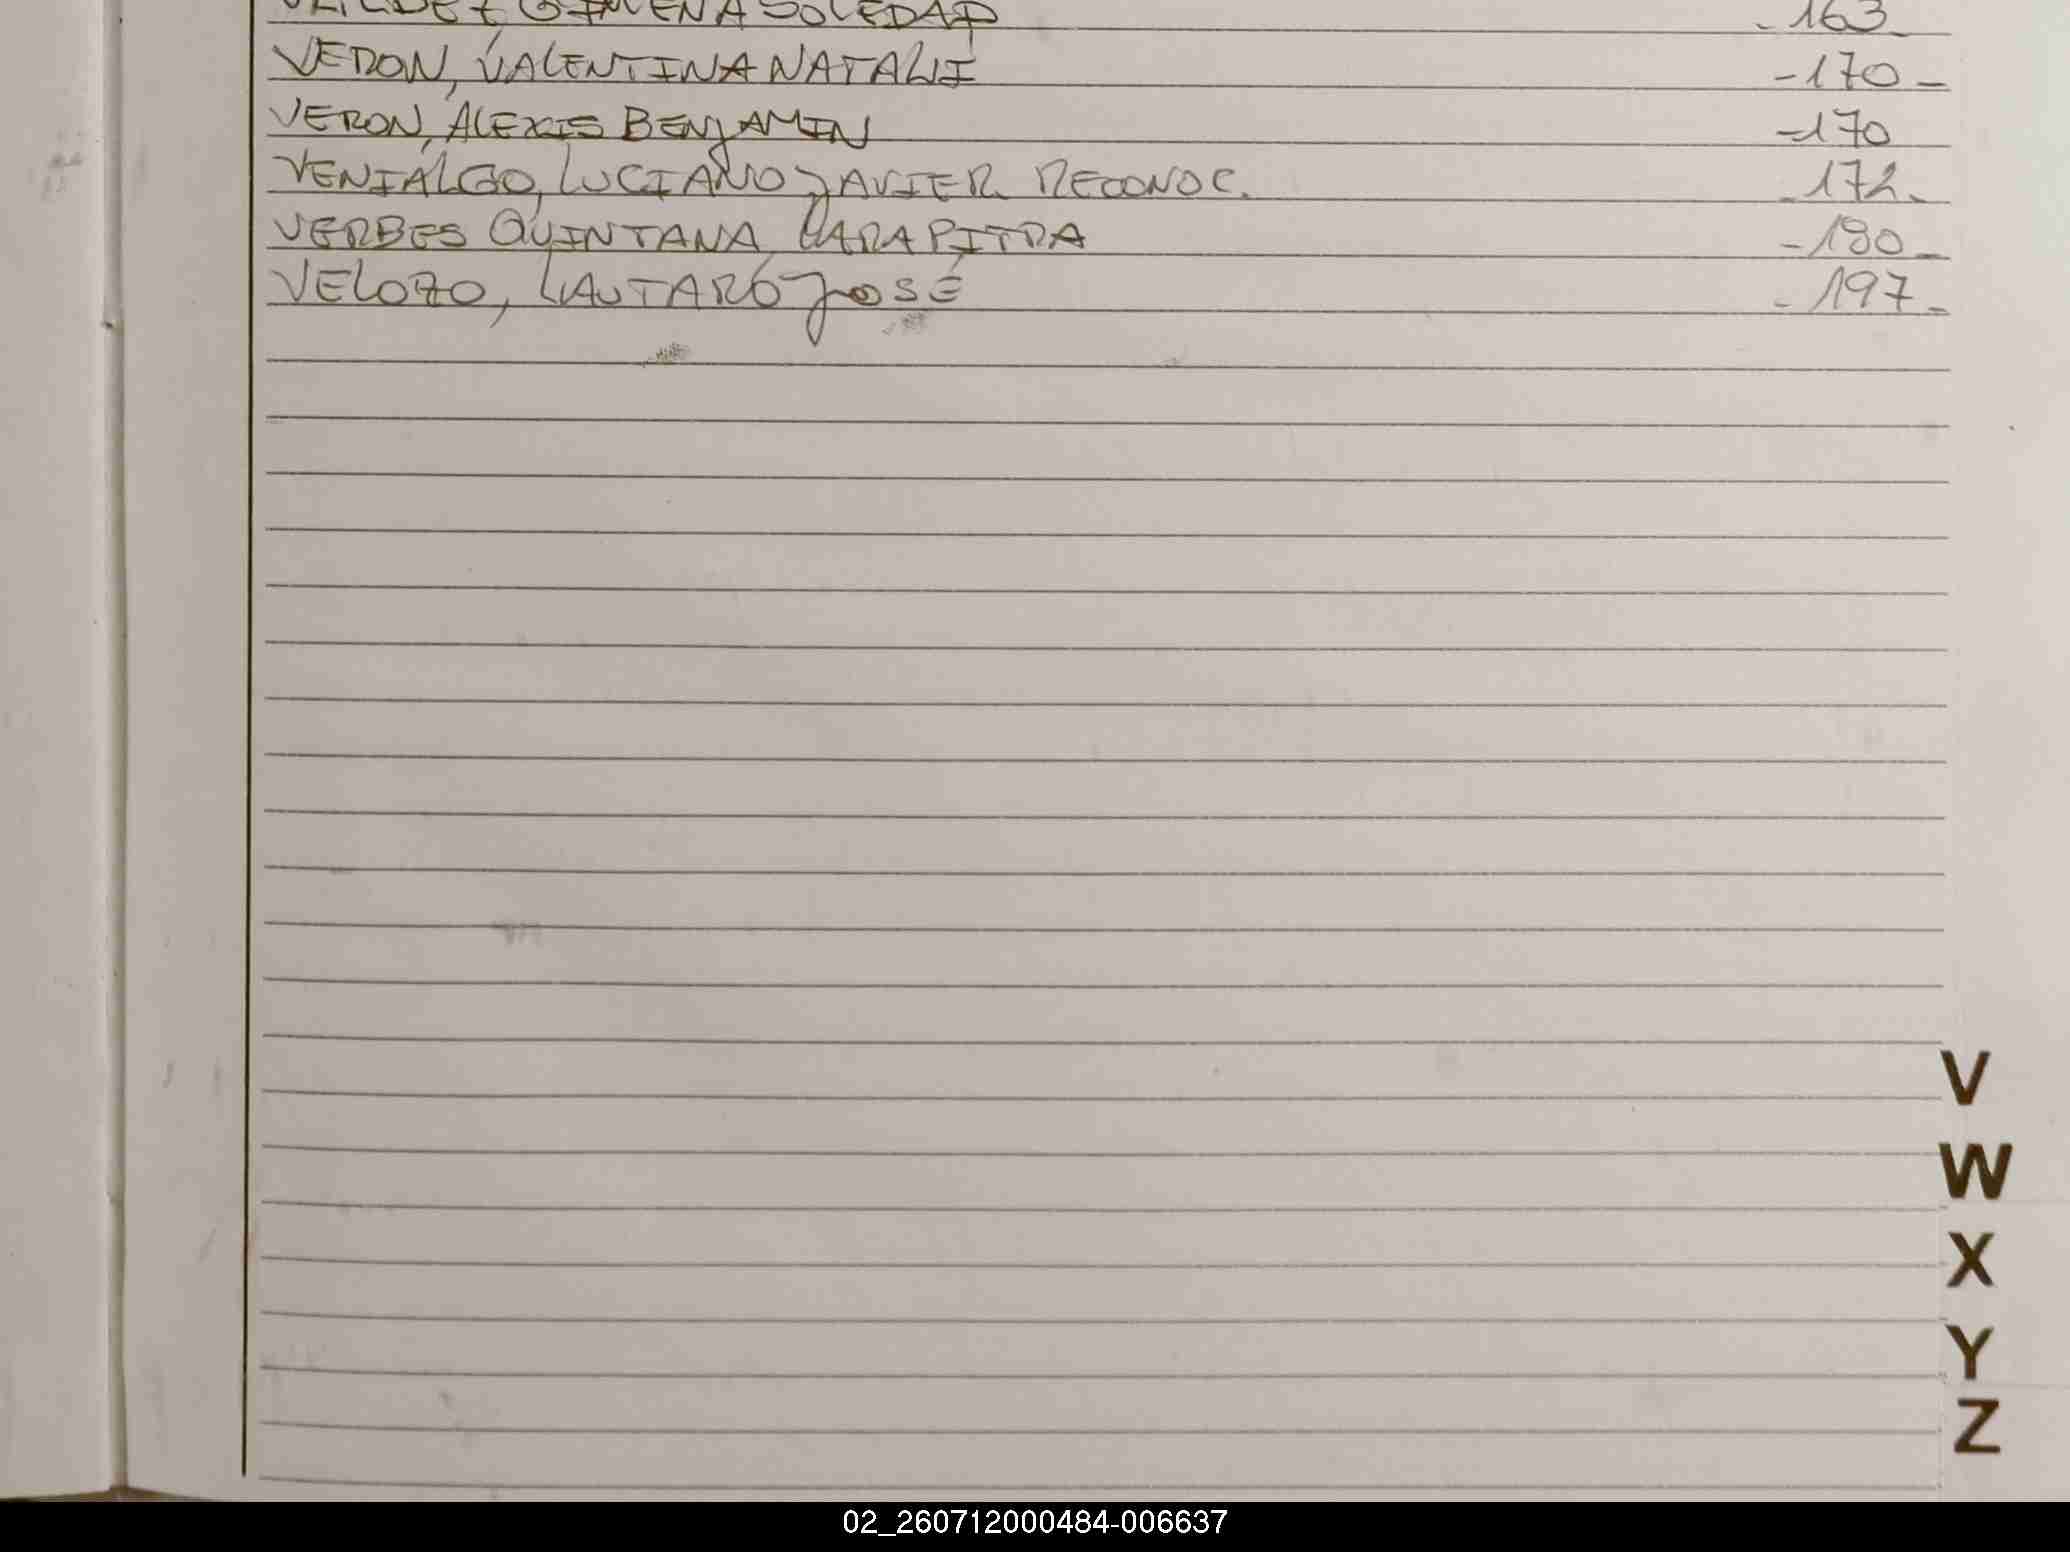 GIMENA SOLEDAD -163-
VERON, VALENTINA NATALI -170-
VERON, ALEXIS BENJAMIN -170
VENIALGO, LUCIANO JAVIER RECONOC. -172-
VERBES QUINTANA, -190-
VELOZO, LAUTARO JOSÉ -197-
V
W
X
Y
Z
02_260712000484-006637